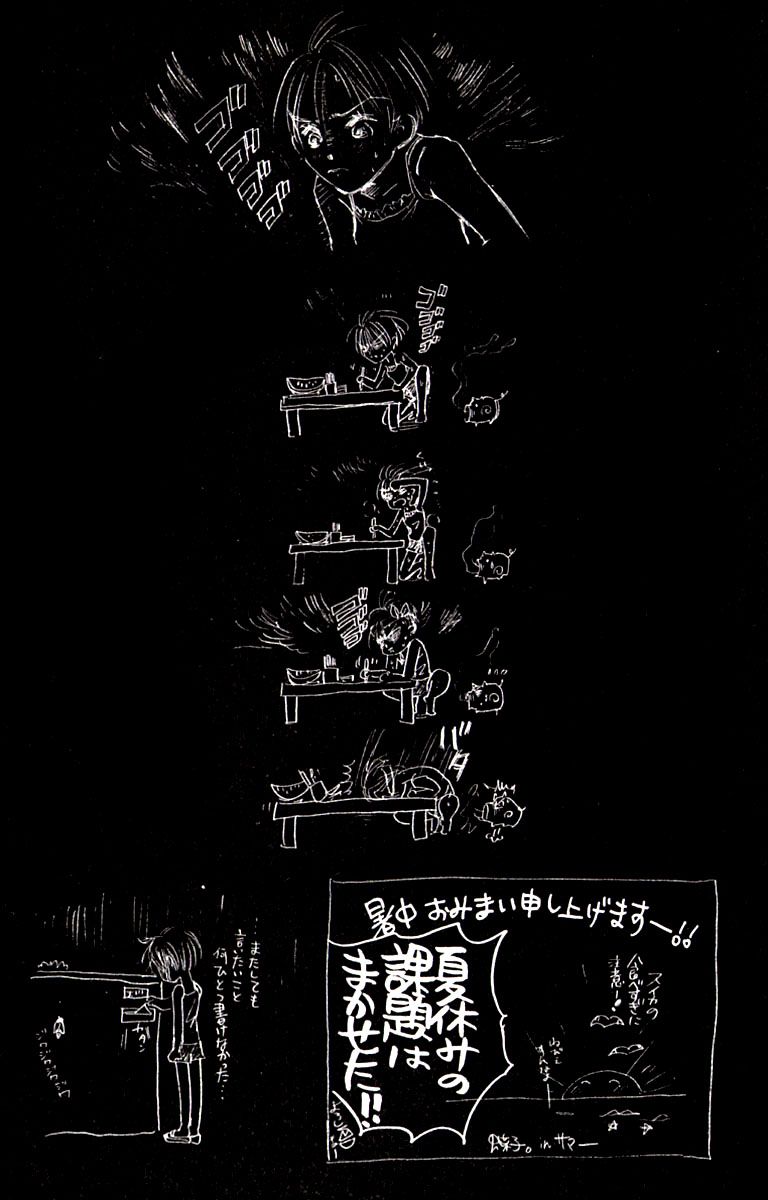 ゴゴゴゴ
ゴゴゴゴ
ゴゴゴ
バタ
…またしても
言いたいこと
何ひとつ書けなかった…
ジロジロジロジロ
暑中おみまい申し上げますー!!
夏休みの
課題は
まかせた!!
スイカの
食べすぎに
注意ー!
in サマー